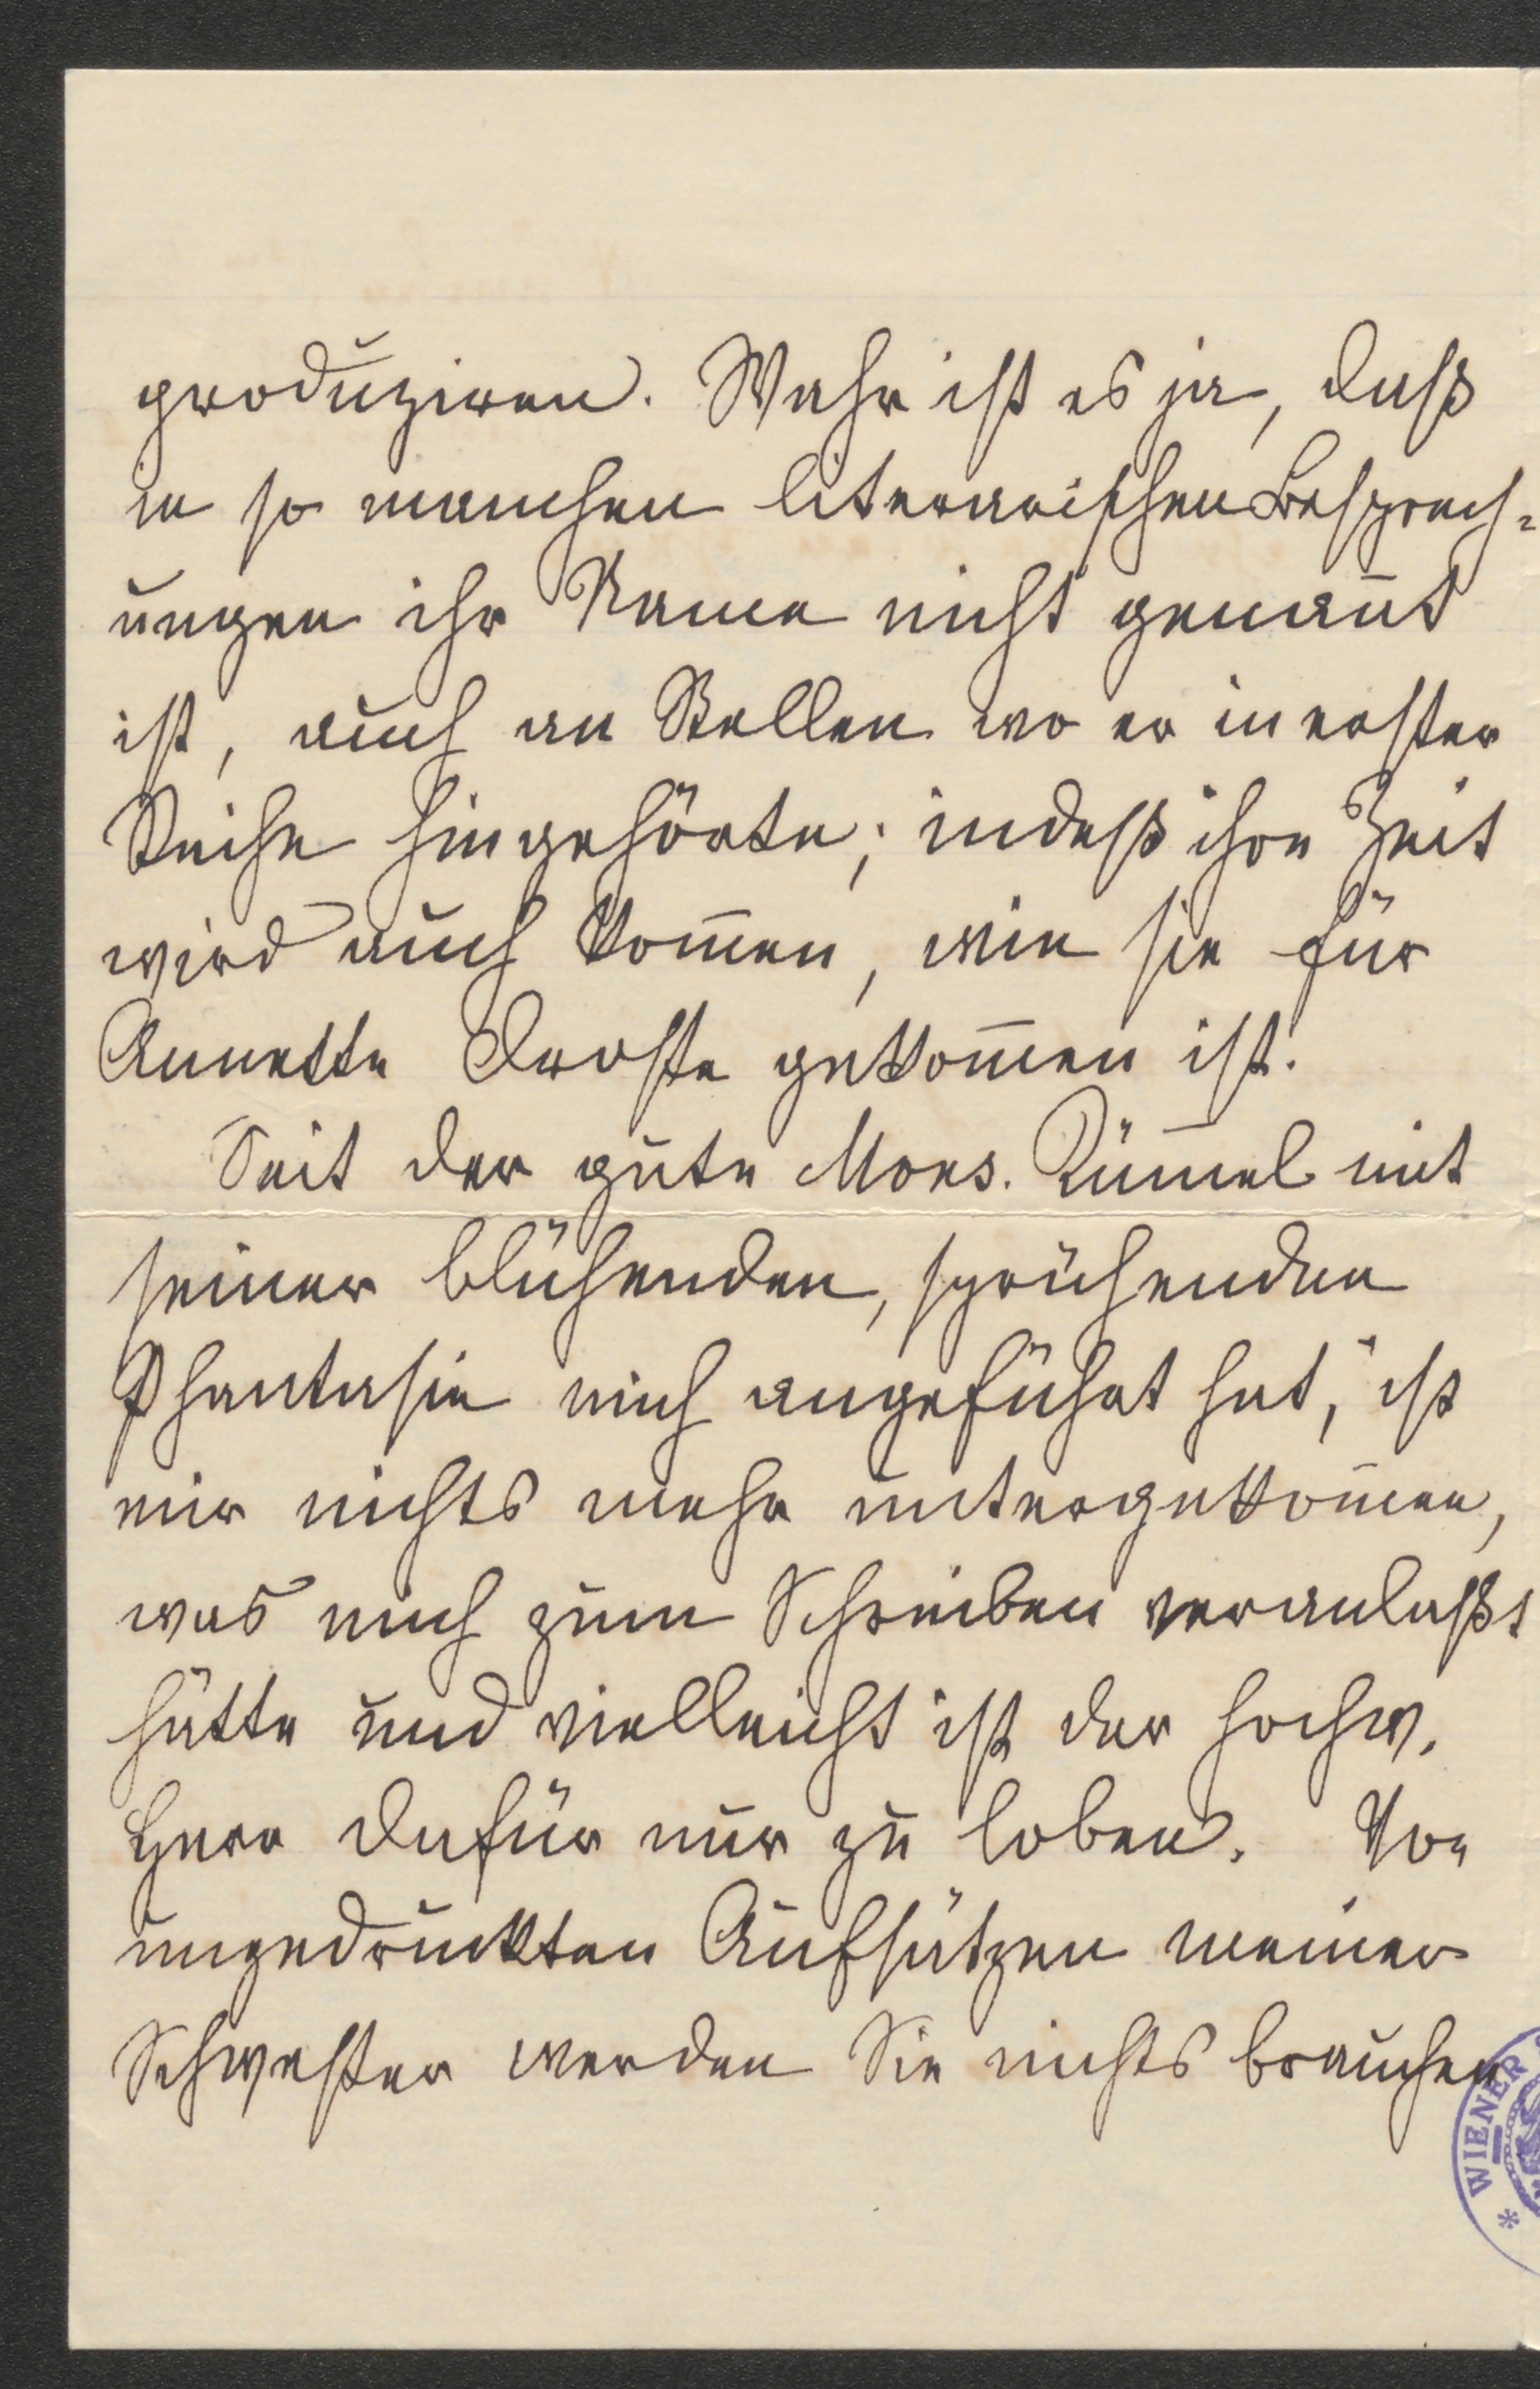 produziren. Wahr ist es ja, daß
in so manchen literarischen Besprech-
ungen ihr Name nicht genan̄t
ist, auch an Stellen wo er in erster
Reihe hingehörte; indeß ihre Zeit
wird auch kom̄en, wie sie für
Annette Droste gekom̄en ist.
Seit der gute Mons. Küm̄el mit
seiner blühenden, sprühenden
Phantasie mich angeführt hat, ist
mir nichts mehr untergekom̄en,
was mich zum Schreiben veranlaßt
hätte und vielleicht ist der hochw.
Herr dafür nur zu loben. Von
ungedruckten Aufsätzen meiner
Schwester werden Sie nichts brauchen
WIENER